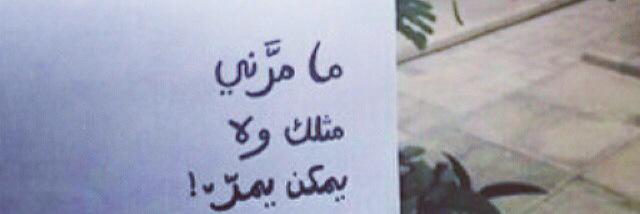 ما مرَّني
مثلك ولا
يمكن يمرّ!